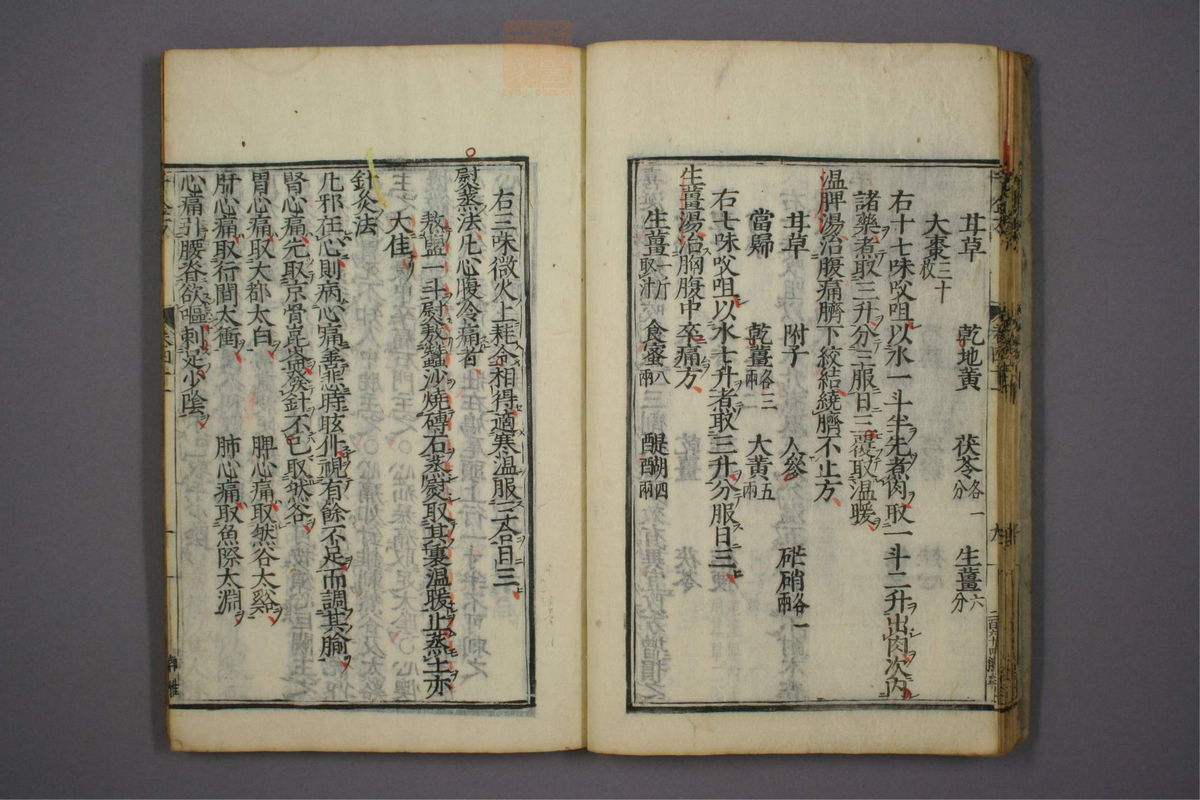 甘草　乾地黃　茯苓各一分　生薑六分
大棗三十枚
右十七味㕮咀以水一斗半先煮肉取一斗二升出肉次內
諸藥煮取三升分三服日三覆取溫暖
溫脾湯治腹痛臍下絞結繞臍不止方
甘草　附子　人參　芒硝各一兩
當歸　乾薑各三兩　大黃五兩
右七味㕮咀以水七升煮取三升分服日三
生薑湯治胸腹中卒痛方
生薑一斤取汁　食蜜八兩　醍醐四兩
右三味微火上耗令相得適寒溫服一合日三
熨蒸法凡心腹冷痛者
熬鹽一斗熨熬蠶沙燒磚石蒸熨取其裏溫暖止蒸土亦
大佳
針灸法
凡邪在心則病心痛善悲時眩仆視有餘不足而調其腧
腎心痛先取京骨崑崙發針不已取然谷
胃心痛取大都太白　脾心痛取然谷太谿
肝心痛取行間太衝　肺心痛取魚際太淵
心痛引腰脊欲嘔刺足少陰